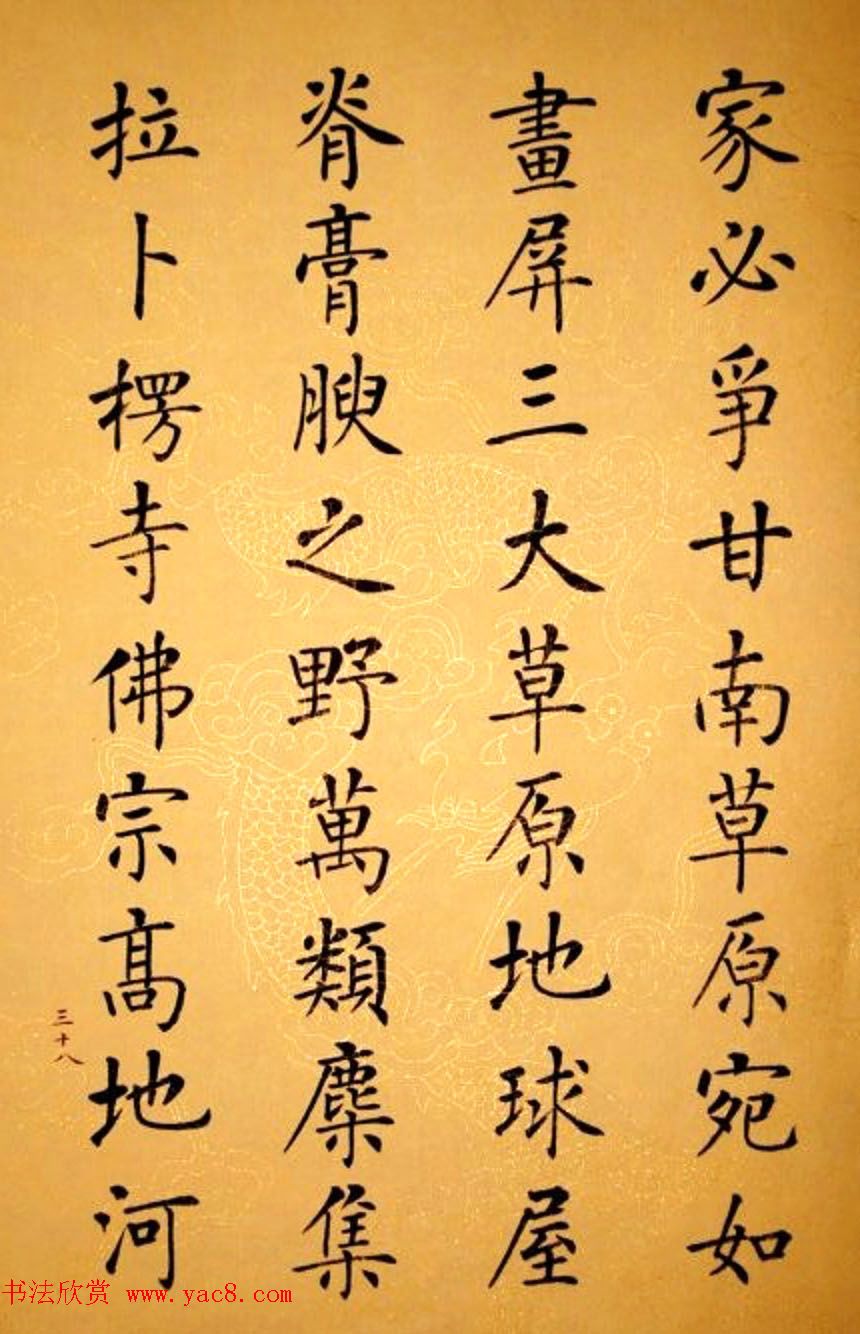 家必爭甘南草原宛如
畫屏三大草原地球屋
脊膏腴之野萬類麇集
拉卜楞寺佛宗髙地河
三十八
书法欣赏 www.yac8.com